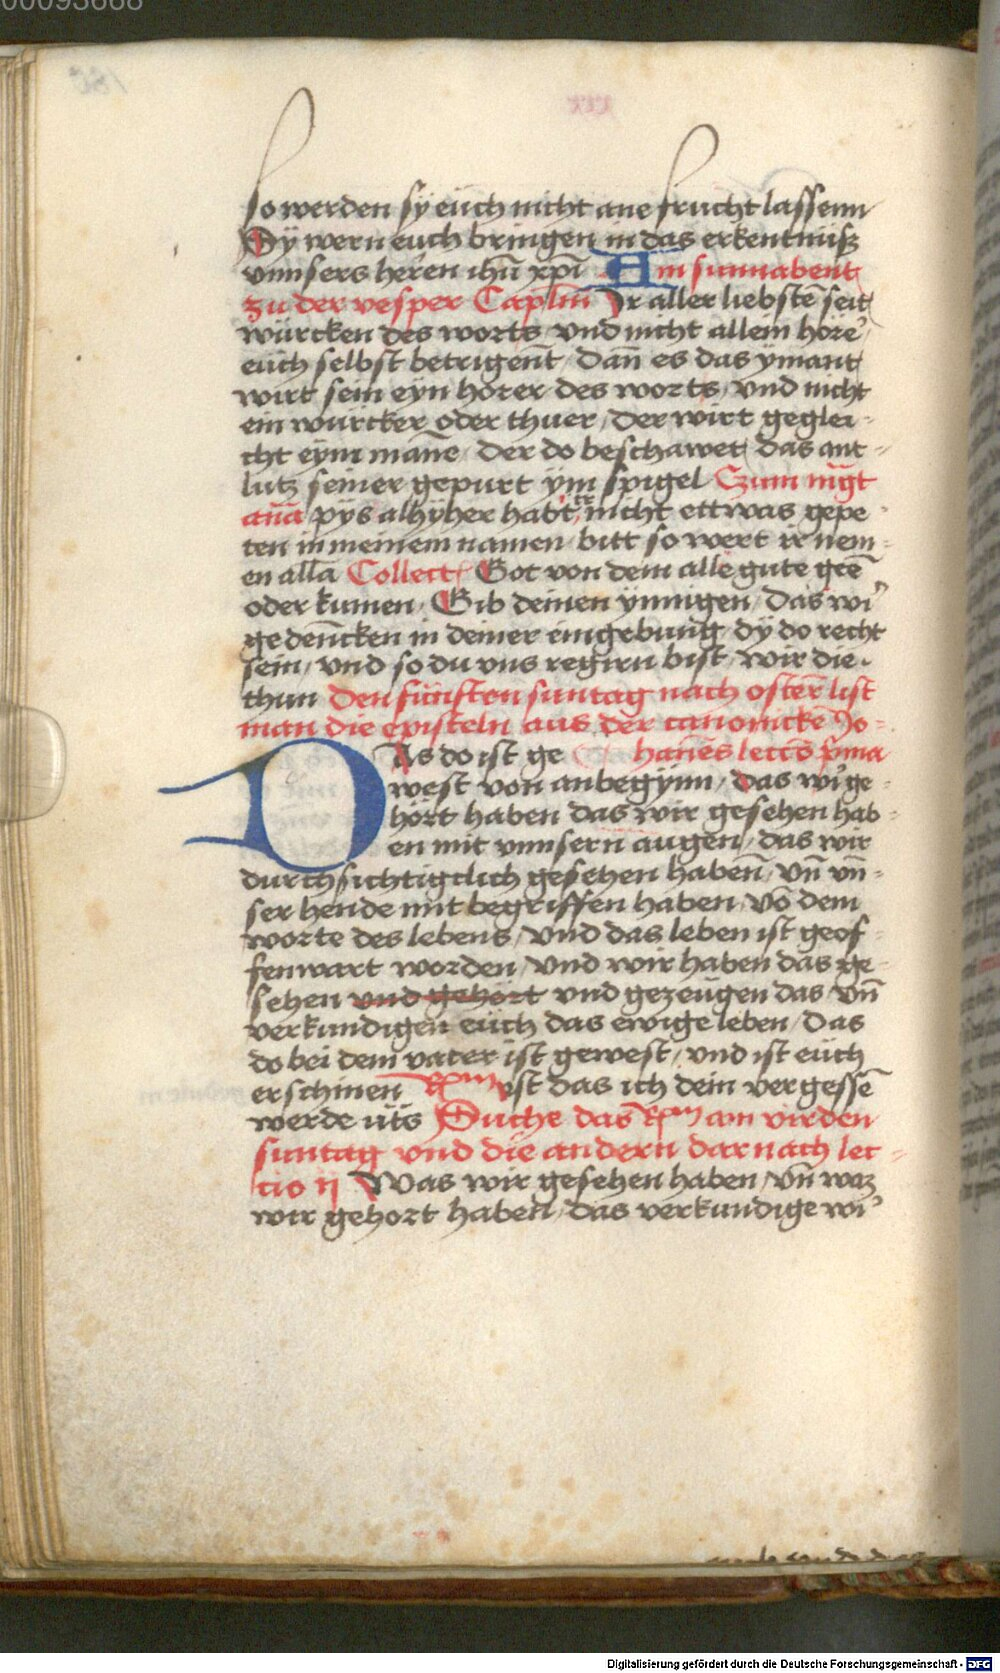 00093668
so werden sÿ eüch nicht ane frucht lassenn
Dÿ wern euch bringen in das erkentnüsz
vnnsers herren ihu᷑ xp̅i Am sunnabent
zu der vesper Caplm̅ Ir aller liebste̅ seit
würcken des worts vnd nicht allein höre᷑
eüch selbst betrigent / dan̅ es das ymant
wirt sein eyn hörer des worts / vnd nicht
ein würcker oder thuer / der wirt geglei-
cht eym man̅e / der do beschawet das ant-
lutz seiner gepurt ym spigel Czum m̅gt
an̅a pÿs alhÿher habt ir nicht ettwas gepe-
ten in meinem namen / bitt so wert ir nem-
en all̅a Collect Got von dem alle gute gee̅
oder kumen / Gib deinen ynnigen / das wi᷑
gedencken in deiner eingebung / dÿ do recht
sein / vnd so du vns regirn bist / wir die
thun Den fünften suntag nach oster̅ list
man die episteln aus der canonicke̅ Jo-
DAs do ist ge hanes leccō p̅ma
west von anbegynn / das wi᷑ ge-
hört haben das wir gesehen hab-
en mit vnnsern augen / das wir
durchsichtigclich gesehen haben̅ / vn̅ vn̅-
ser hende mit begriffen haben / vō dem
worte des lebens / vnd das leben ist geof-
fenwart worden / vnd wir haben das ge-
sehen vnd gehört vnd gezeugen das / vn̅
verkundigen eüch das ewige leben / das
do bei dem vater ist gewest / vnd ist eüch
erschinen R̅m Ist das ich dein vergesse̅
werde u̅ts Suche das R̅m am virden
suntag vnd die andern darnach lec-
tio ij Was wir gesehen haben / vn̅ waz
wir gehort haben / das verkundige wi᷑
Digitalisierung gefördert durch die Deutsche Forschungsgemeinschaft - DFG